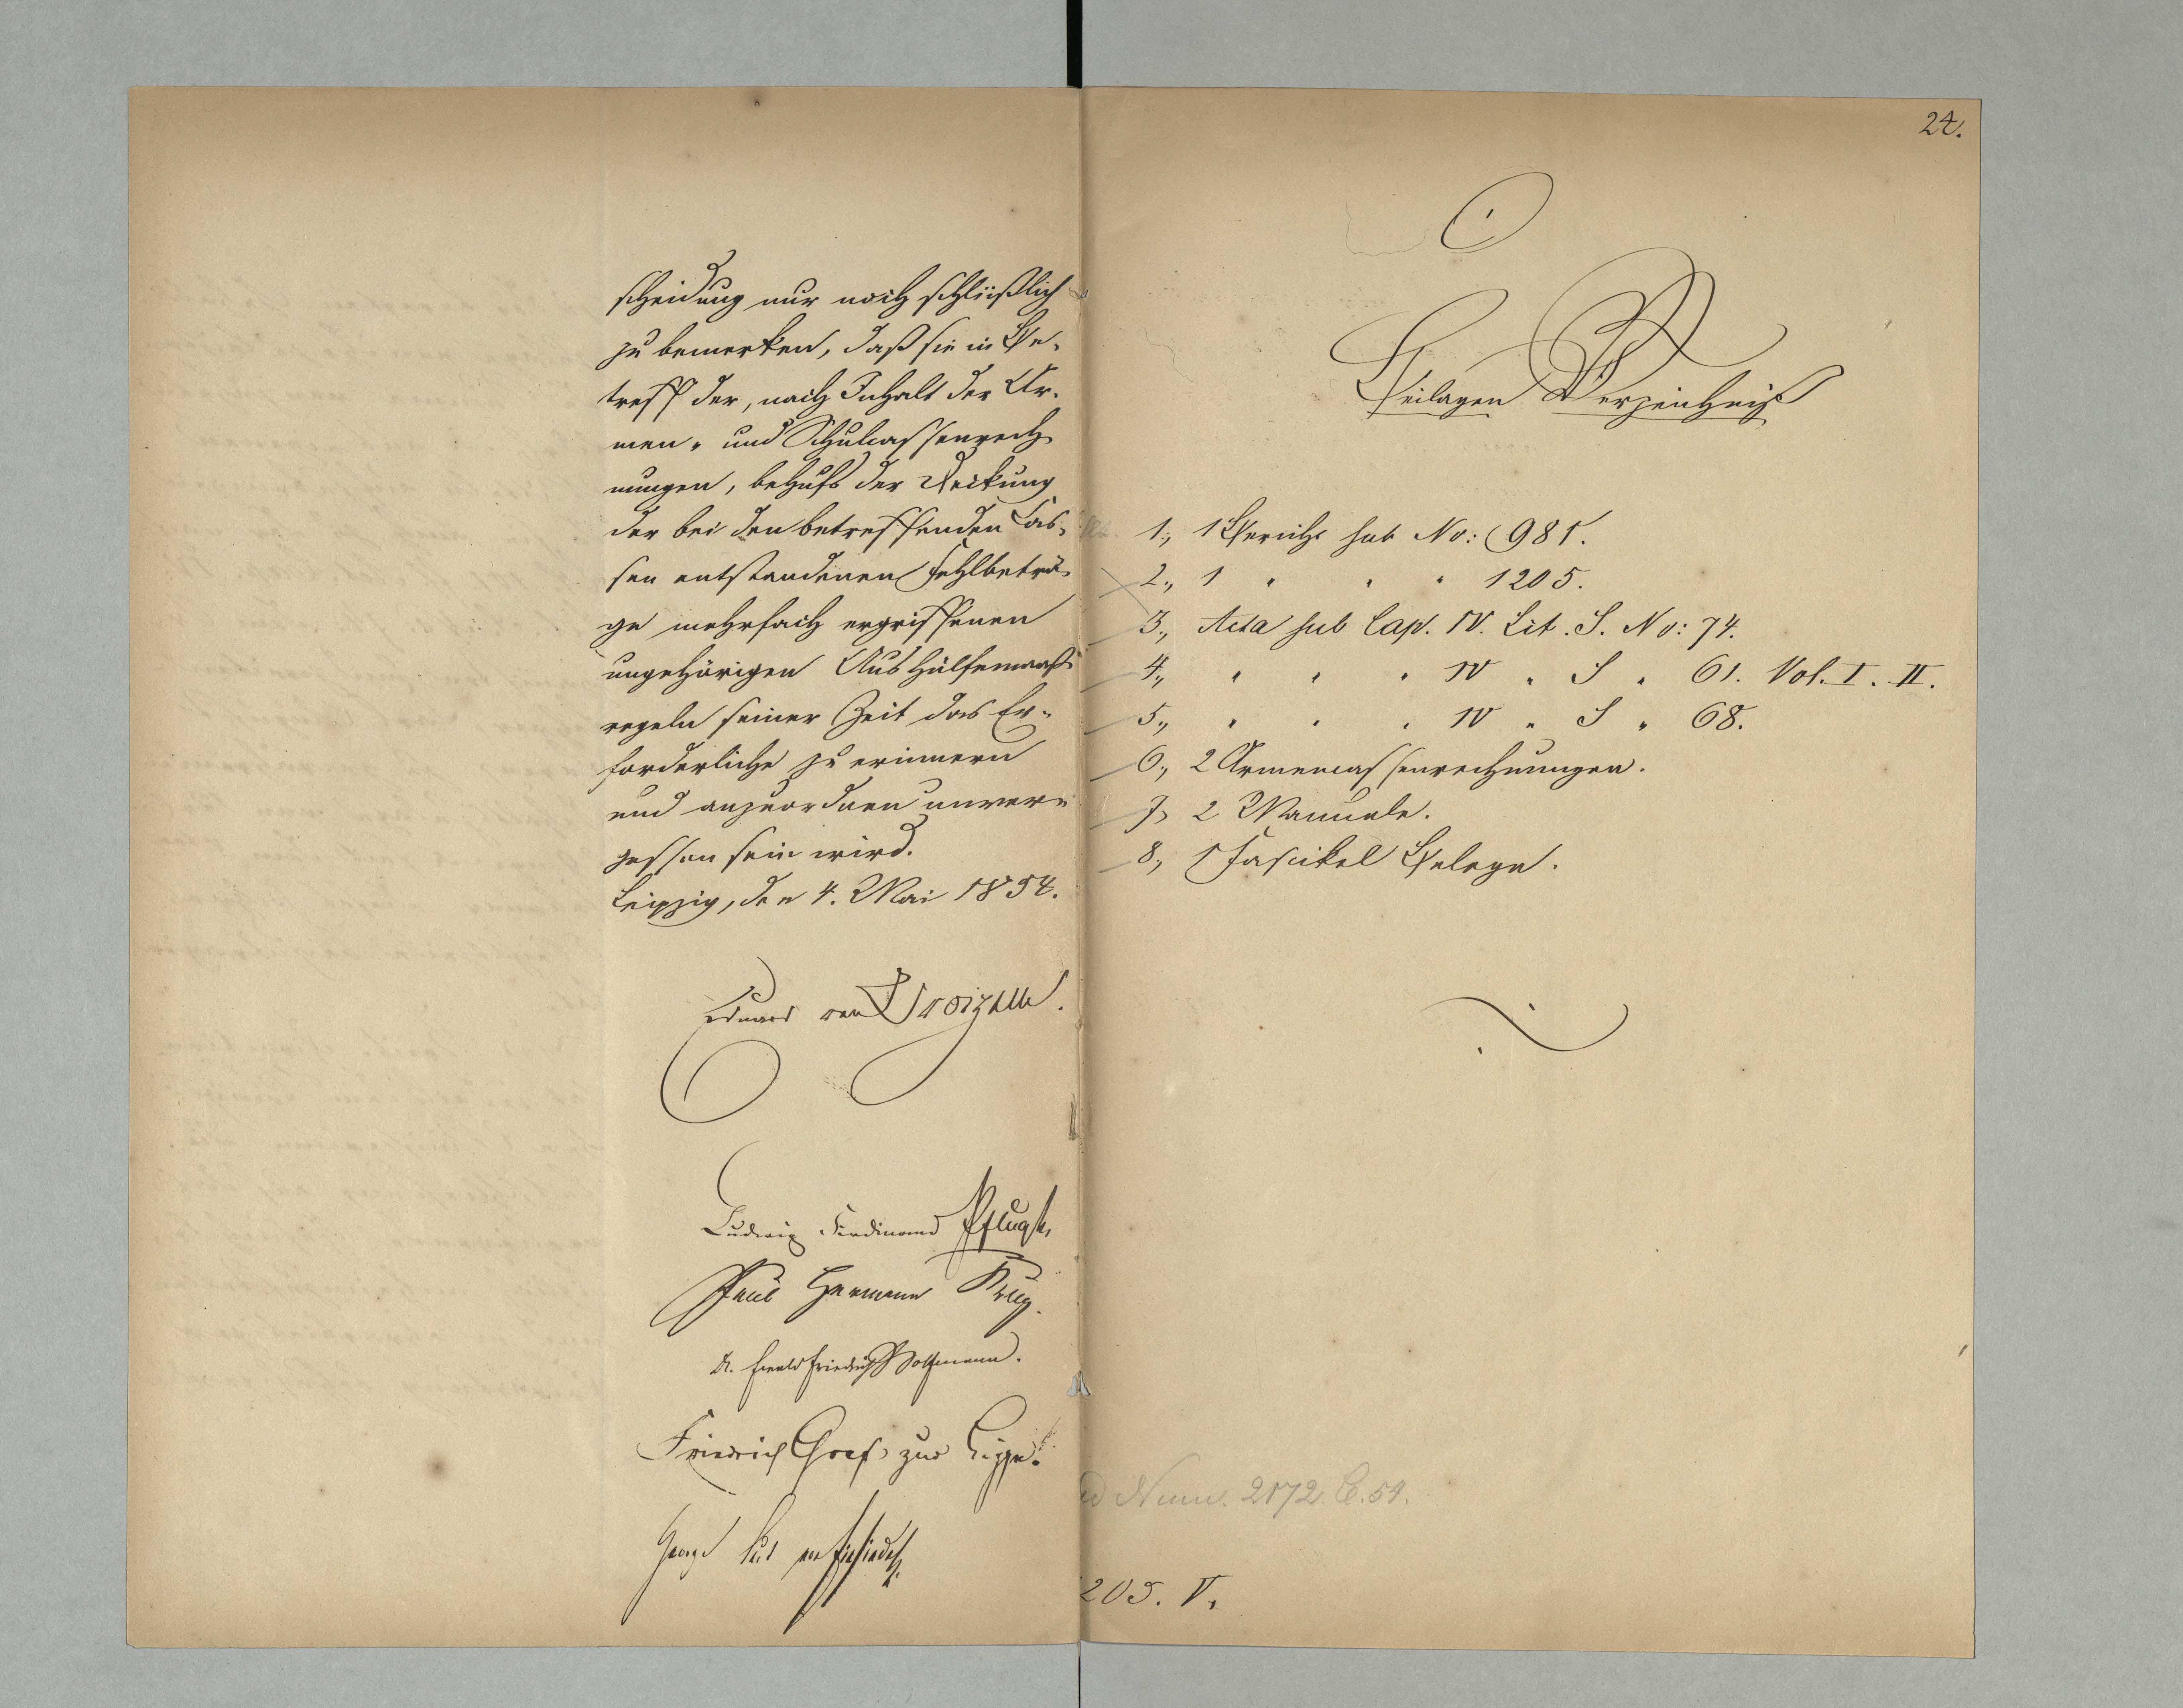 scheidung nur noch schlüßlich
zu bemerken, daß sie in Be-
treff der, nach Inhalt der Ar-
men- und Schulcassenrech-
nungen, behufs der Deckung
der bei den betreffenden Cas-
sen entstandenen Fehlbeträ-
ge mehrfach ergriffenen
ungehörigen Aushülfemaaß-
regeln seiner Zeit das Er-
forderliche zu erinnern
und anzuordnen unver-
gessen sein wird.
Leipzig, den 4. Mai 1854.
Eduard von Broizem.
Ludwig Ferdinand Pflugk,
Paul Hermann Krug.
Dr. Ewald Friedrich Hoffmann.
Friedrich Graf zur Lippe.
24.
Beilagen Verzeichniß
1., 1 Bericht sub No: 981.
2., 1 " " " 1205.
3., Acta sub Cap. IV. Lit. S. No: 74.
4., " " " IV " S " 61. Vol. I. II.
5., " " " IV " S " 68.
6., 2 Armencassenrechnungen.
7, 2 Manuale.
8., 1 Fascikel Belege.
Num. 2172. C. 54.
205. V.